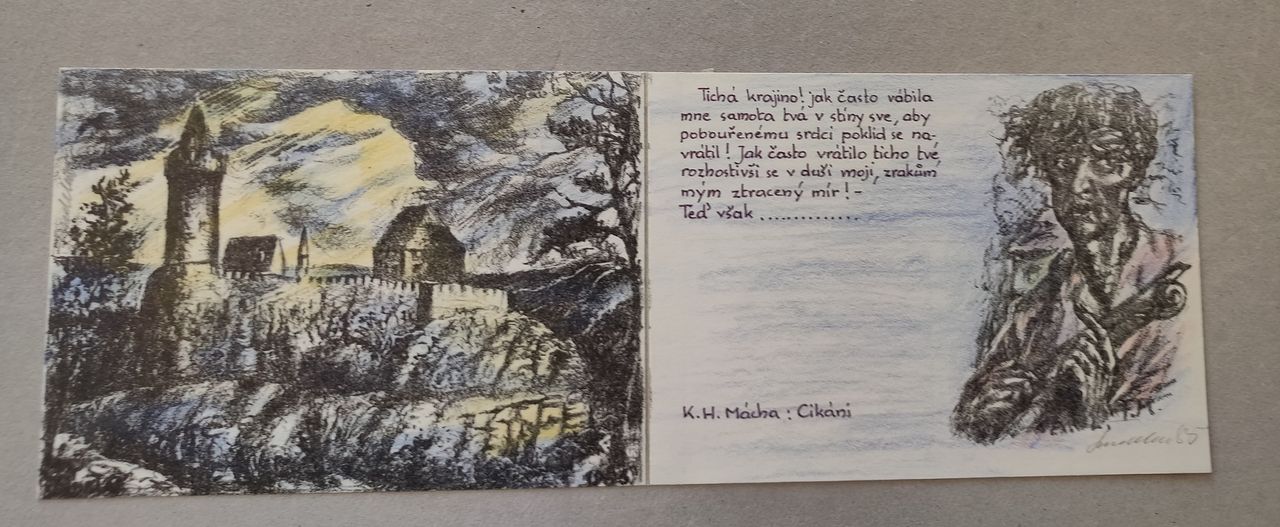 Tichá krajino! jak často vábila
mne samota tvá v stíny sve, aby
pobouřenému srdci poklid se na-
vrátil! Jak často vrátilo ticho tvé,
rozhostivši se v duši moji, zrakům
mým ztracený mír! -
Teď však ..............
K. H. Mácha : Cikáni
T.M.
85